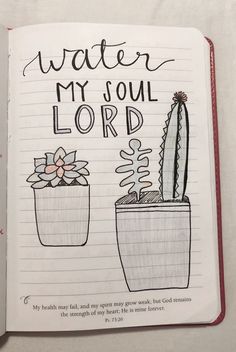 water
MY SOUL
LORD
My health may fail, and my spirit may grow weak, but God remains
the strength of my heart; He is mine forever.
Ps. 73:26